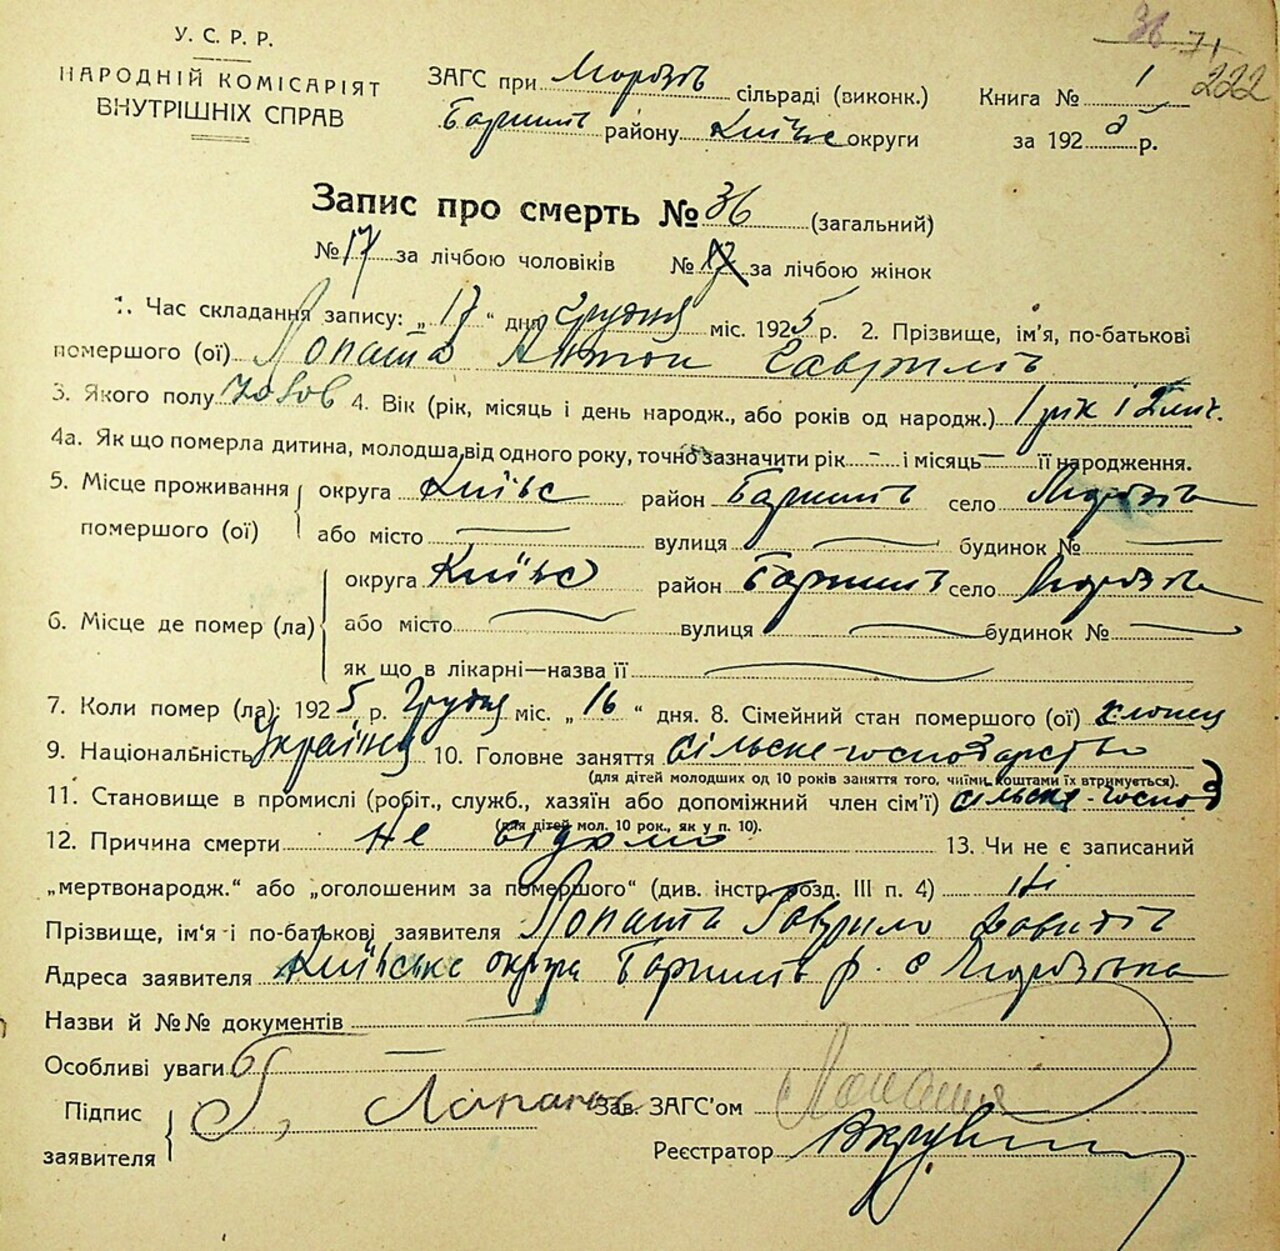 У. С. Р. Р.
НАРОДНІЙ КОМІСАРІЯТ
ВНУТРІШНІХ СПРАВ
36 71 222
ЗАГС при сільраді (виконк.)
району округи
Книга № 1
за 1925 р.
Запис про смерть № 36 (загальний)
№ 17 за лічбою чоловіків № за лічбою жінок
1. Час складання запису: „ 17 “ дня Грудня міс. 1925 р. 2. Прізвище, ім'я, по-батькові
помершого (ої) Лопата Антон Гаврилів
3. Якого полу чолов 4. Вік (рік, місяць і день народж., або років од народж.) 1 рік і 2 міс.
4а. Як що померла дитина, молодша від одного року, точно зазначити рік — і місяць — її народження.
5. Місце проживання помершого (ої)
округа Київс район село
або місто — вулиця — будинок № —
6. Місце де помер (ла)
округа Київс район село
або місто — вулиця — будинок № —
як що в лікарні—назва її —
7. Коли помер (ла): 1925 р. Грудня міс. „ 16 “ дня. 8. Сімейний стан помершого (ої) хлопец
9. Національність 10. Головне заняття сільске-господарство
(для дітей молодших од 10 років заняття того, чиїми коштами їх втримується).
11. Становище в промислі (робіт., служб., хазяїн або допоміжний член сім'ї) сільске-господ
(для дітей мол. 10 рок., як у п. 10).
12. Причина смерти Не відомо 13. Чи не є записаний
„мертвонародж.“ або „оголошеним за помершого“ (див. інстр. розд. III п. 4) Ні
Прізвище, ім'я і по-батькові заявителя Лопата Гаврило
Адреса заявителя Київське округа р. с
Назви й №№ документів
Особливі уваги —
Підпис заявителя
Зав. ЗАГС'ом
Реєстратор